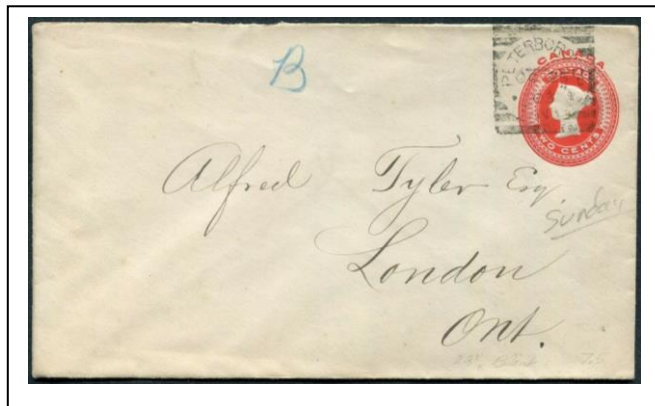 B
CANADA
TWO CENTS
Alfred Tyler Esq.
Sunday
London
Ont.